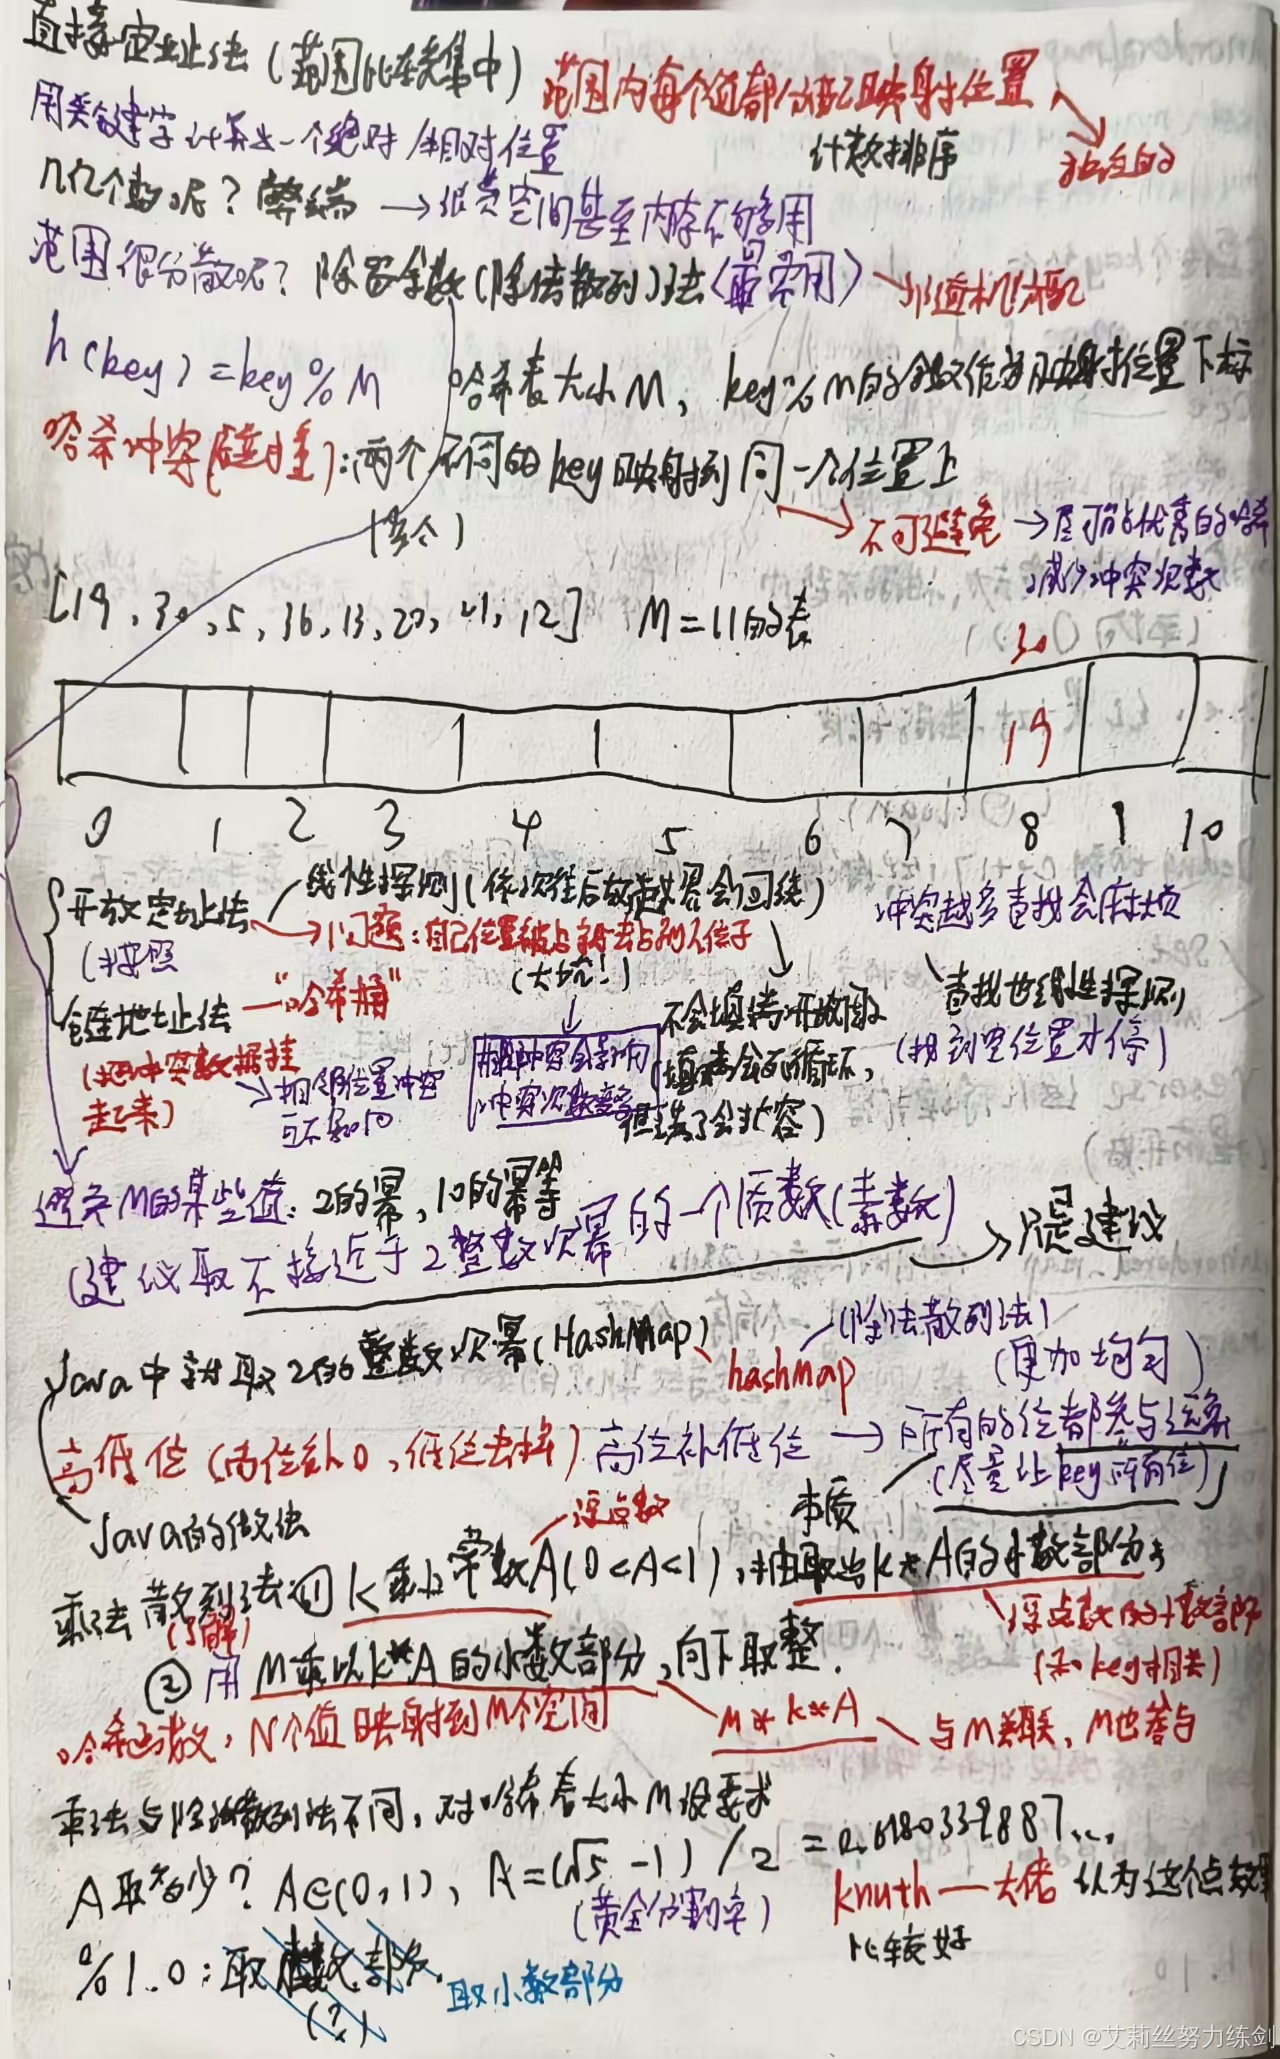 直接定址法（范围比较集中）范围内每个值都分配映射位置
用关键字计算出一个绝对/相对位置 计数排序 独立的
几亿个数呢？弊端→浪费空间甚至内存不够用
范围很分散呢？除留余数（除法散列）法〈最常用〉→随机分配
h(key)=key%M 哈希表大小M，key%M的余数作为映射位置下标
哈希冲突(碰撞)：两个不同的key映射到同一个位置上
（多个） →不可避免→尽可能优秀的哈希
减少冲突次数
[19，30，5，36，13，20，21，12] M=11的表
30
19
0 1 2 3 4 5 6 7 8 9 10
开放定址法 线性探测（依次往后放越界会回绕） 冲突越多查找会麻烦
→问题：自己位置被占就去占别人位子
（大坑！）
链地址法—“哈希桶” 不会填满 查找也线性探测
（把冲突数据挂起来） →相邻位置冲突 填满会死循环， （找到空位置才停）
冲突次数 但满了会扩容）
避免M的某些值：2的幂，10的幂等
（建议取不接近于2整数次幂的一个质数(素数) →只是建议
Java中就取2的整数次幂（HashMap） hashmap（除法散列法）
（更加均匀）
高低位（高位补0，低位去掉）高位补低位→所有的位都参与运算
（尽量让key所有位）
Java的做法 浮点数 本质
乘法散列法①K乘以常数A（0<A<1），抽取出k*A的小数部分
（了解） 浮点数的小数部分
②用M乘以k*A的小数部分，向下取整. （和key相关）
哈希函数，N个值映射到M个空间 M*k*A 与M关联，M也参与
乘法与除法散列法不同，对哈希表大小M没要求
A取多少？A∈(0,1)，A=(√5-1)/2=0.6180339887...
（黄金分割率） knuth—大佬 认为这个点效果
比较好
%1.0：取 部分. 取小数部分
（？）
CSDN @艾莉丝努力练剑